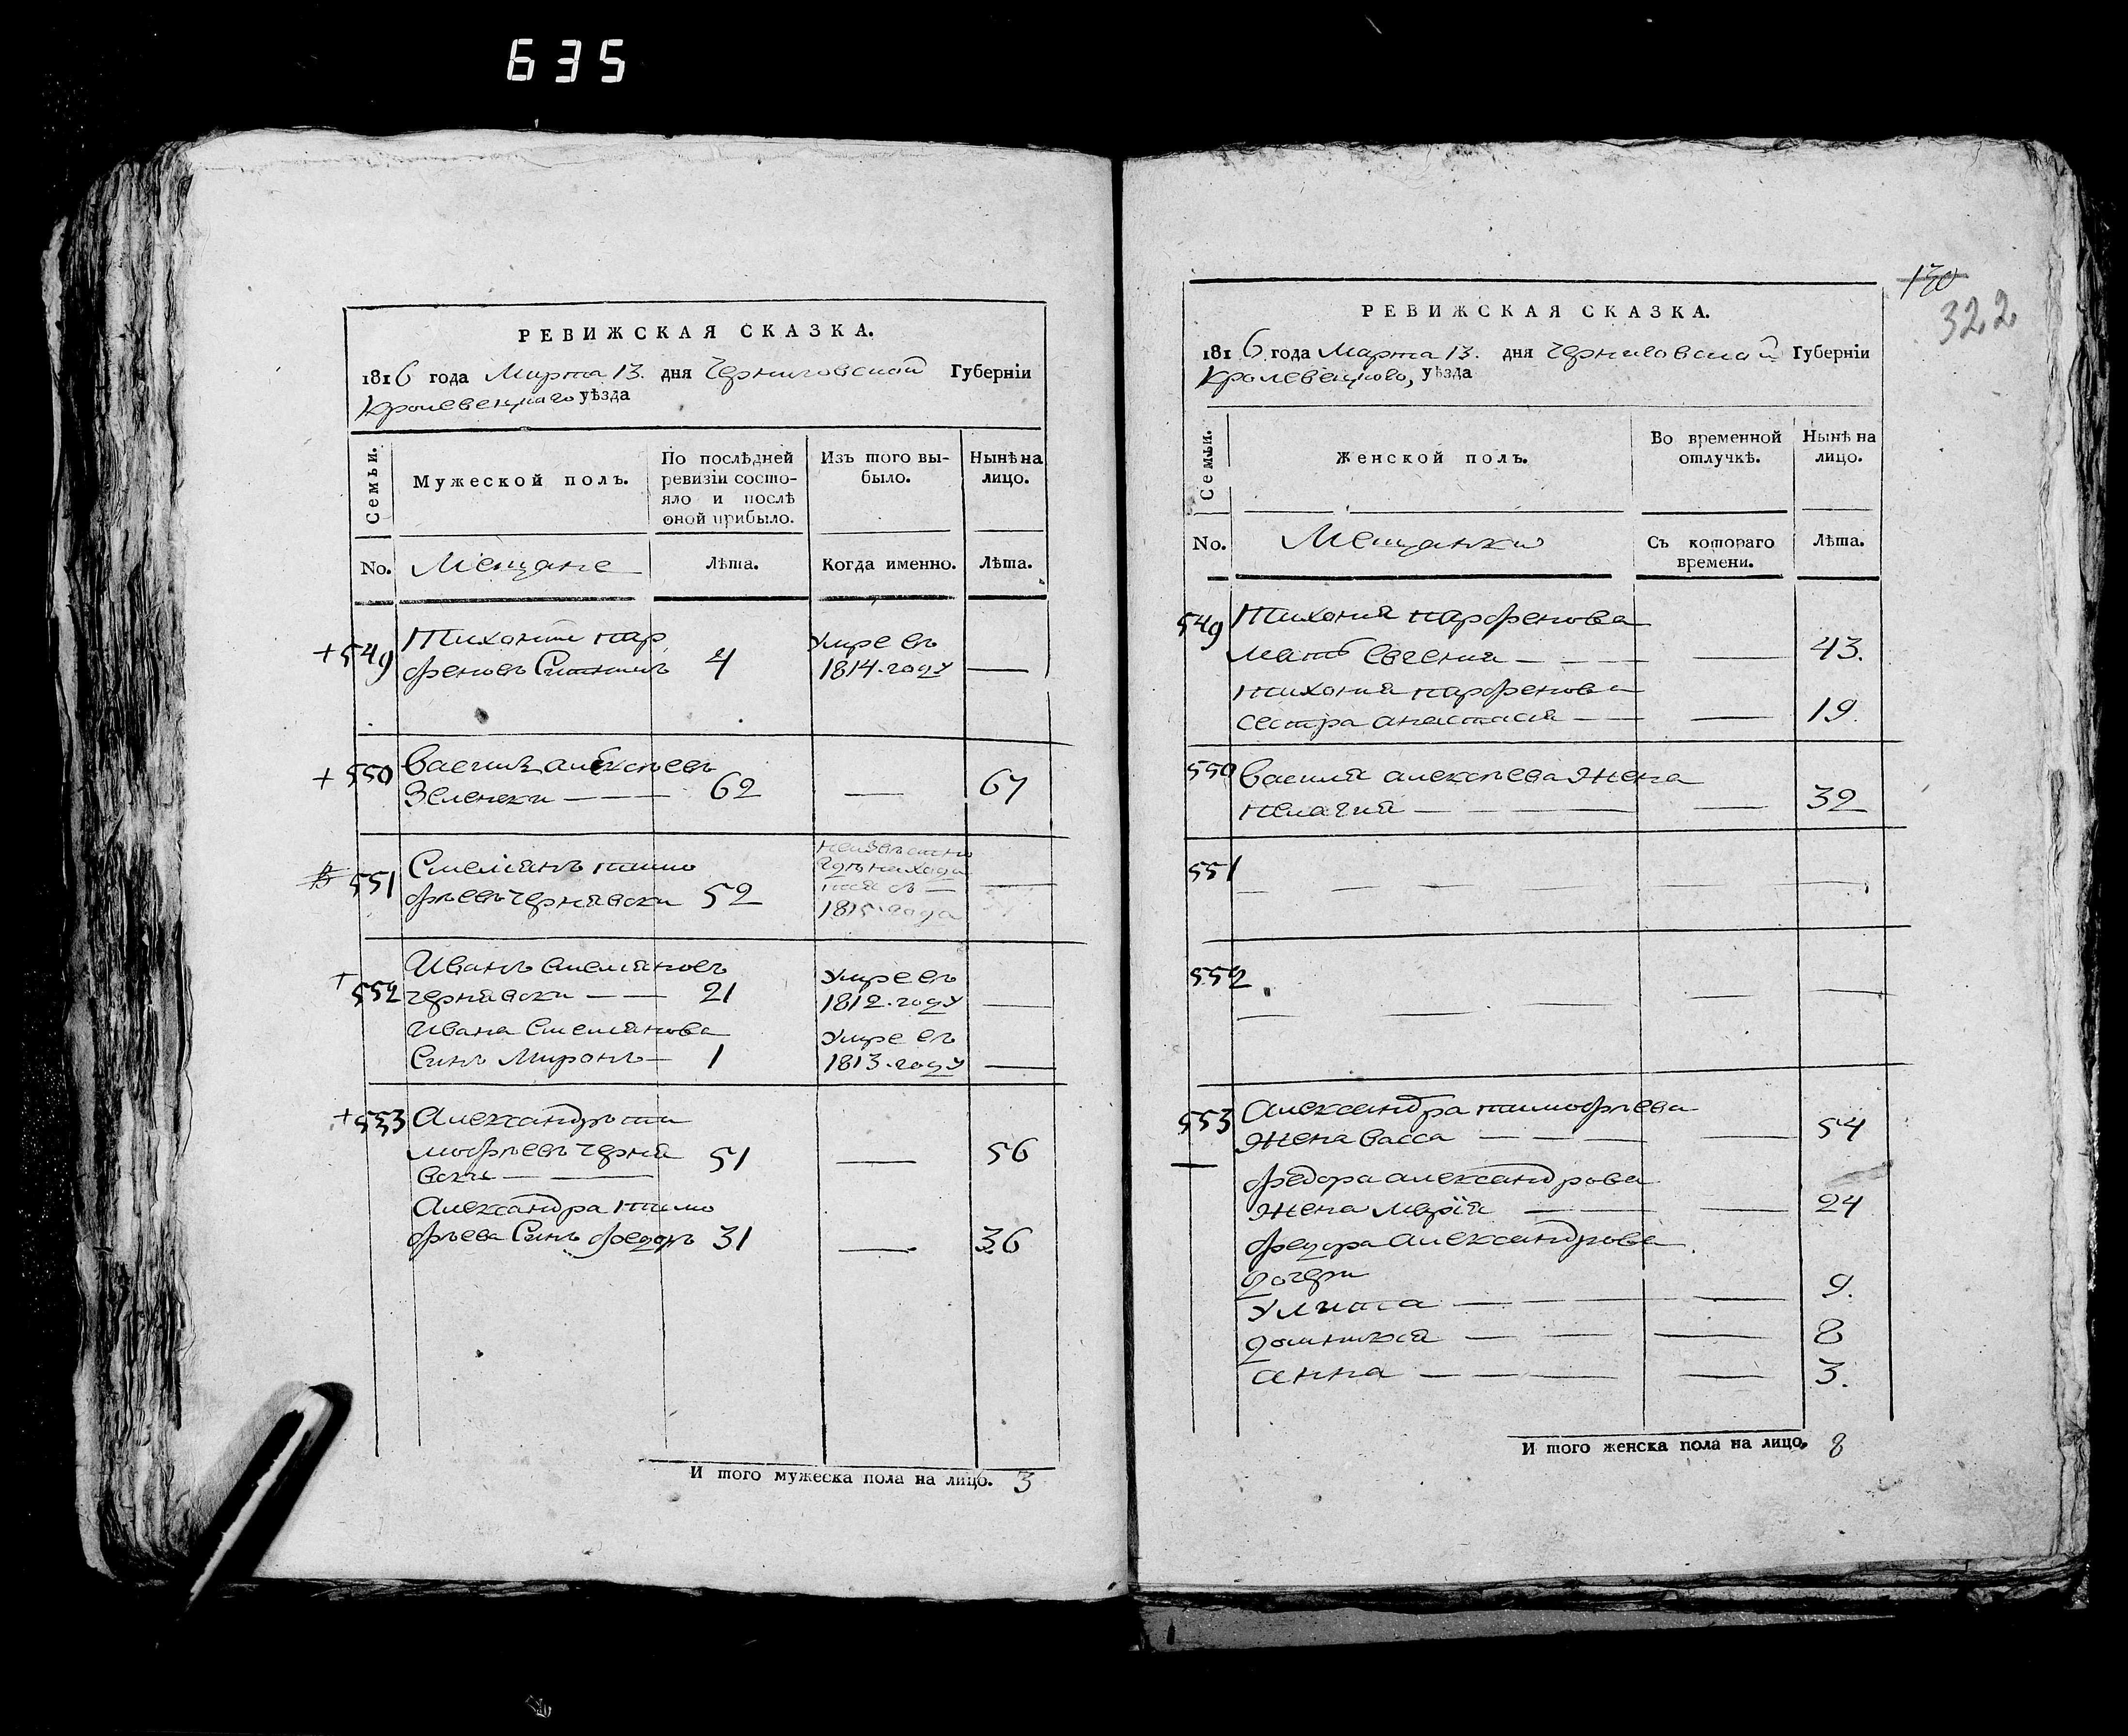 635
РЕВИЖСКАЯ СКАЗКА.
1816 года Марта 13. дня Черниговской Губернїи
Кролевецкаго уѣзда
Семьи.
Мужеской полъ.
По послѣдней
ревизїи состо-
яло и послѣ
оной прибыло.
Изъ того вы-
было.
Нынѣ на
лицо.
No.
Мещане
Лѣта.
Когда именно.
Лѣта.
+549
Тихонъ пар
феновъ 4
Умре въ
1814. году —
+550
Василь алексѣевъ
Зеленски — 62 — 67
551
Емелiянъ тимо
фѣевъ Чернявски 52
неизвѣстно
где находи
тся съ —
1815. года —
+552
Иванъ емеляновъ
чернявски — 21
Умре въ
1812. году —
Ивана Емелянова
Синъ Миронъ — 1
Умре въ
1813. году —
+553
Александръ ти
мофѣевъ Черня
вски — 51 — 56
Александра тимо
фѣева Синъ Федоръ 31 — 36
И того мужеска пола на лицо. 3
130
322
РЕВИЖСКАЯ СКАЗКА.
1816 года Марта 13. дня Черниговской Губернїи
Кролевецкого, уѣзда
Семьи.
Женской полъ.
Во временной
отлучкѣ.
Нынѣ на
лицо.
No.
Мещанки
Съ котораго
времени.
Лѣта.
549
Тихония парфенова
мать Евгения — — 43.
тихония парфенова
сестра анастасия — — 19.
550
Василя алексѣева жена
пелагия — — 32
551
552
553
Александра тимофѣева
жена васса — — 54
федора александрова
жена марїя — — 24
федора александрова
дочери
Улита — — 9.
домникия — — 8
анна — — 3.
И того женска пола на лицо. 8